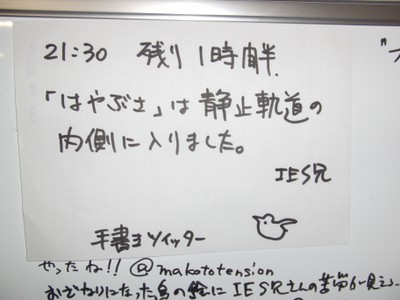 21:30 残り1時間半.
「はやぶさ」は静止軌道の
内側に入りました。
IES兄
手書きツイッター
やったね!! @makototension
おざなりになった鳥の絵に IES兄さんの苦労が見え